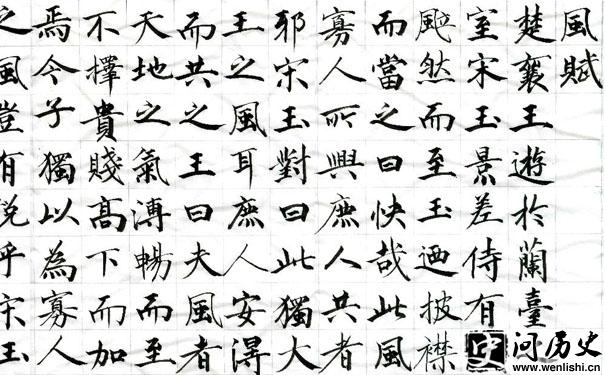 風賦
楚襄王遊於蘭臺
室宋玉景差侍有
颯然而至玉迺披襟
而當之曰快哉此風
寡人所與庶人共者
邪宋玉對曰此獨大
王之風耳庶人安得
而共之王曰夫風者
天地之氣溥暢而至
不擇貴賤高下而加
焉今子獨以為寡人
之風豈有說乎宋玉
史 问历史
www.wenlishi.cn